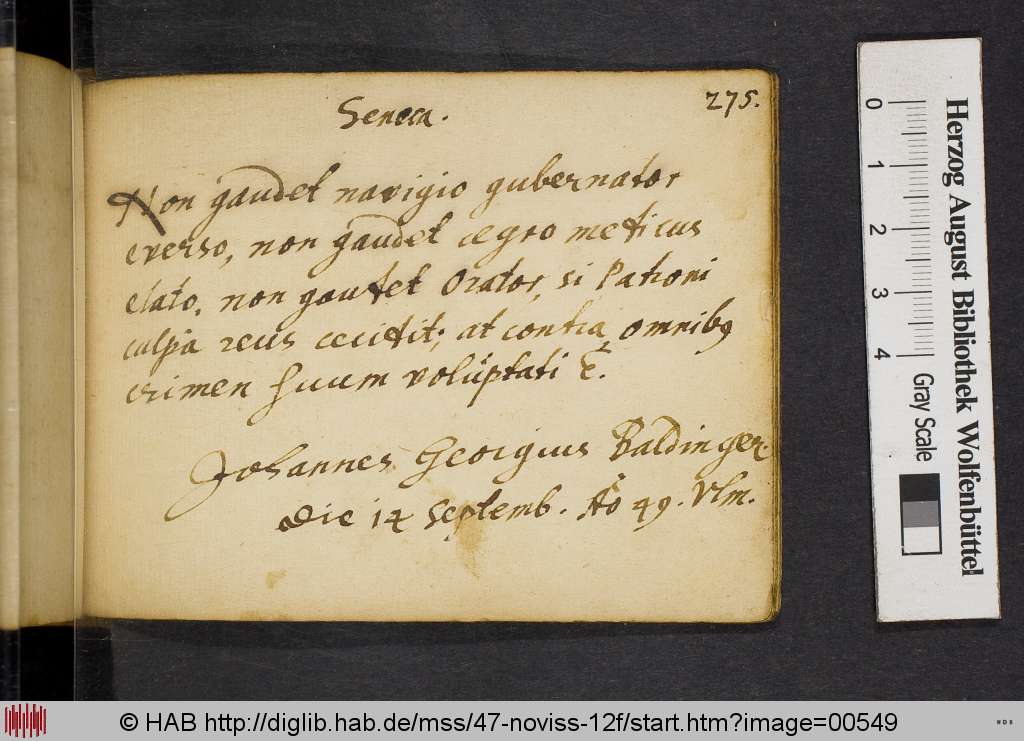 275.
Seneca.
Non gaudet navigio gubernator
everso, non gaudet ægro medicus
elato, non gaudet Orator, si Patroni
culpâ reus cecidit; at contra omnibꝰ
crimen suum voluptati &.
Johannes Georgius Baldinger.
die 14 Septemb. Aõ 49. Vlm.
Herzog August Bibliothek Wolfenbüttel
0 1 2 3 4
Gray Scale
© HAB http://diglib.hab.de/mss/47-noviss-12f/start.htm?image=00549